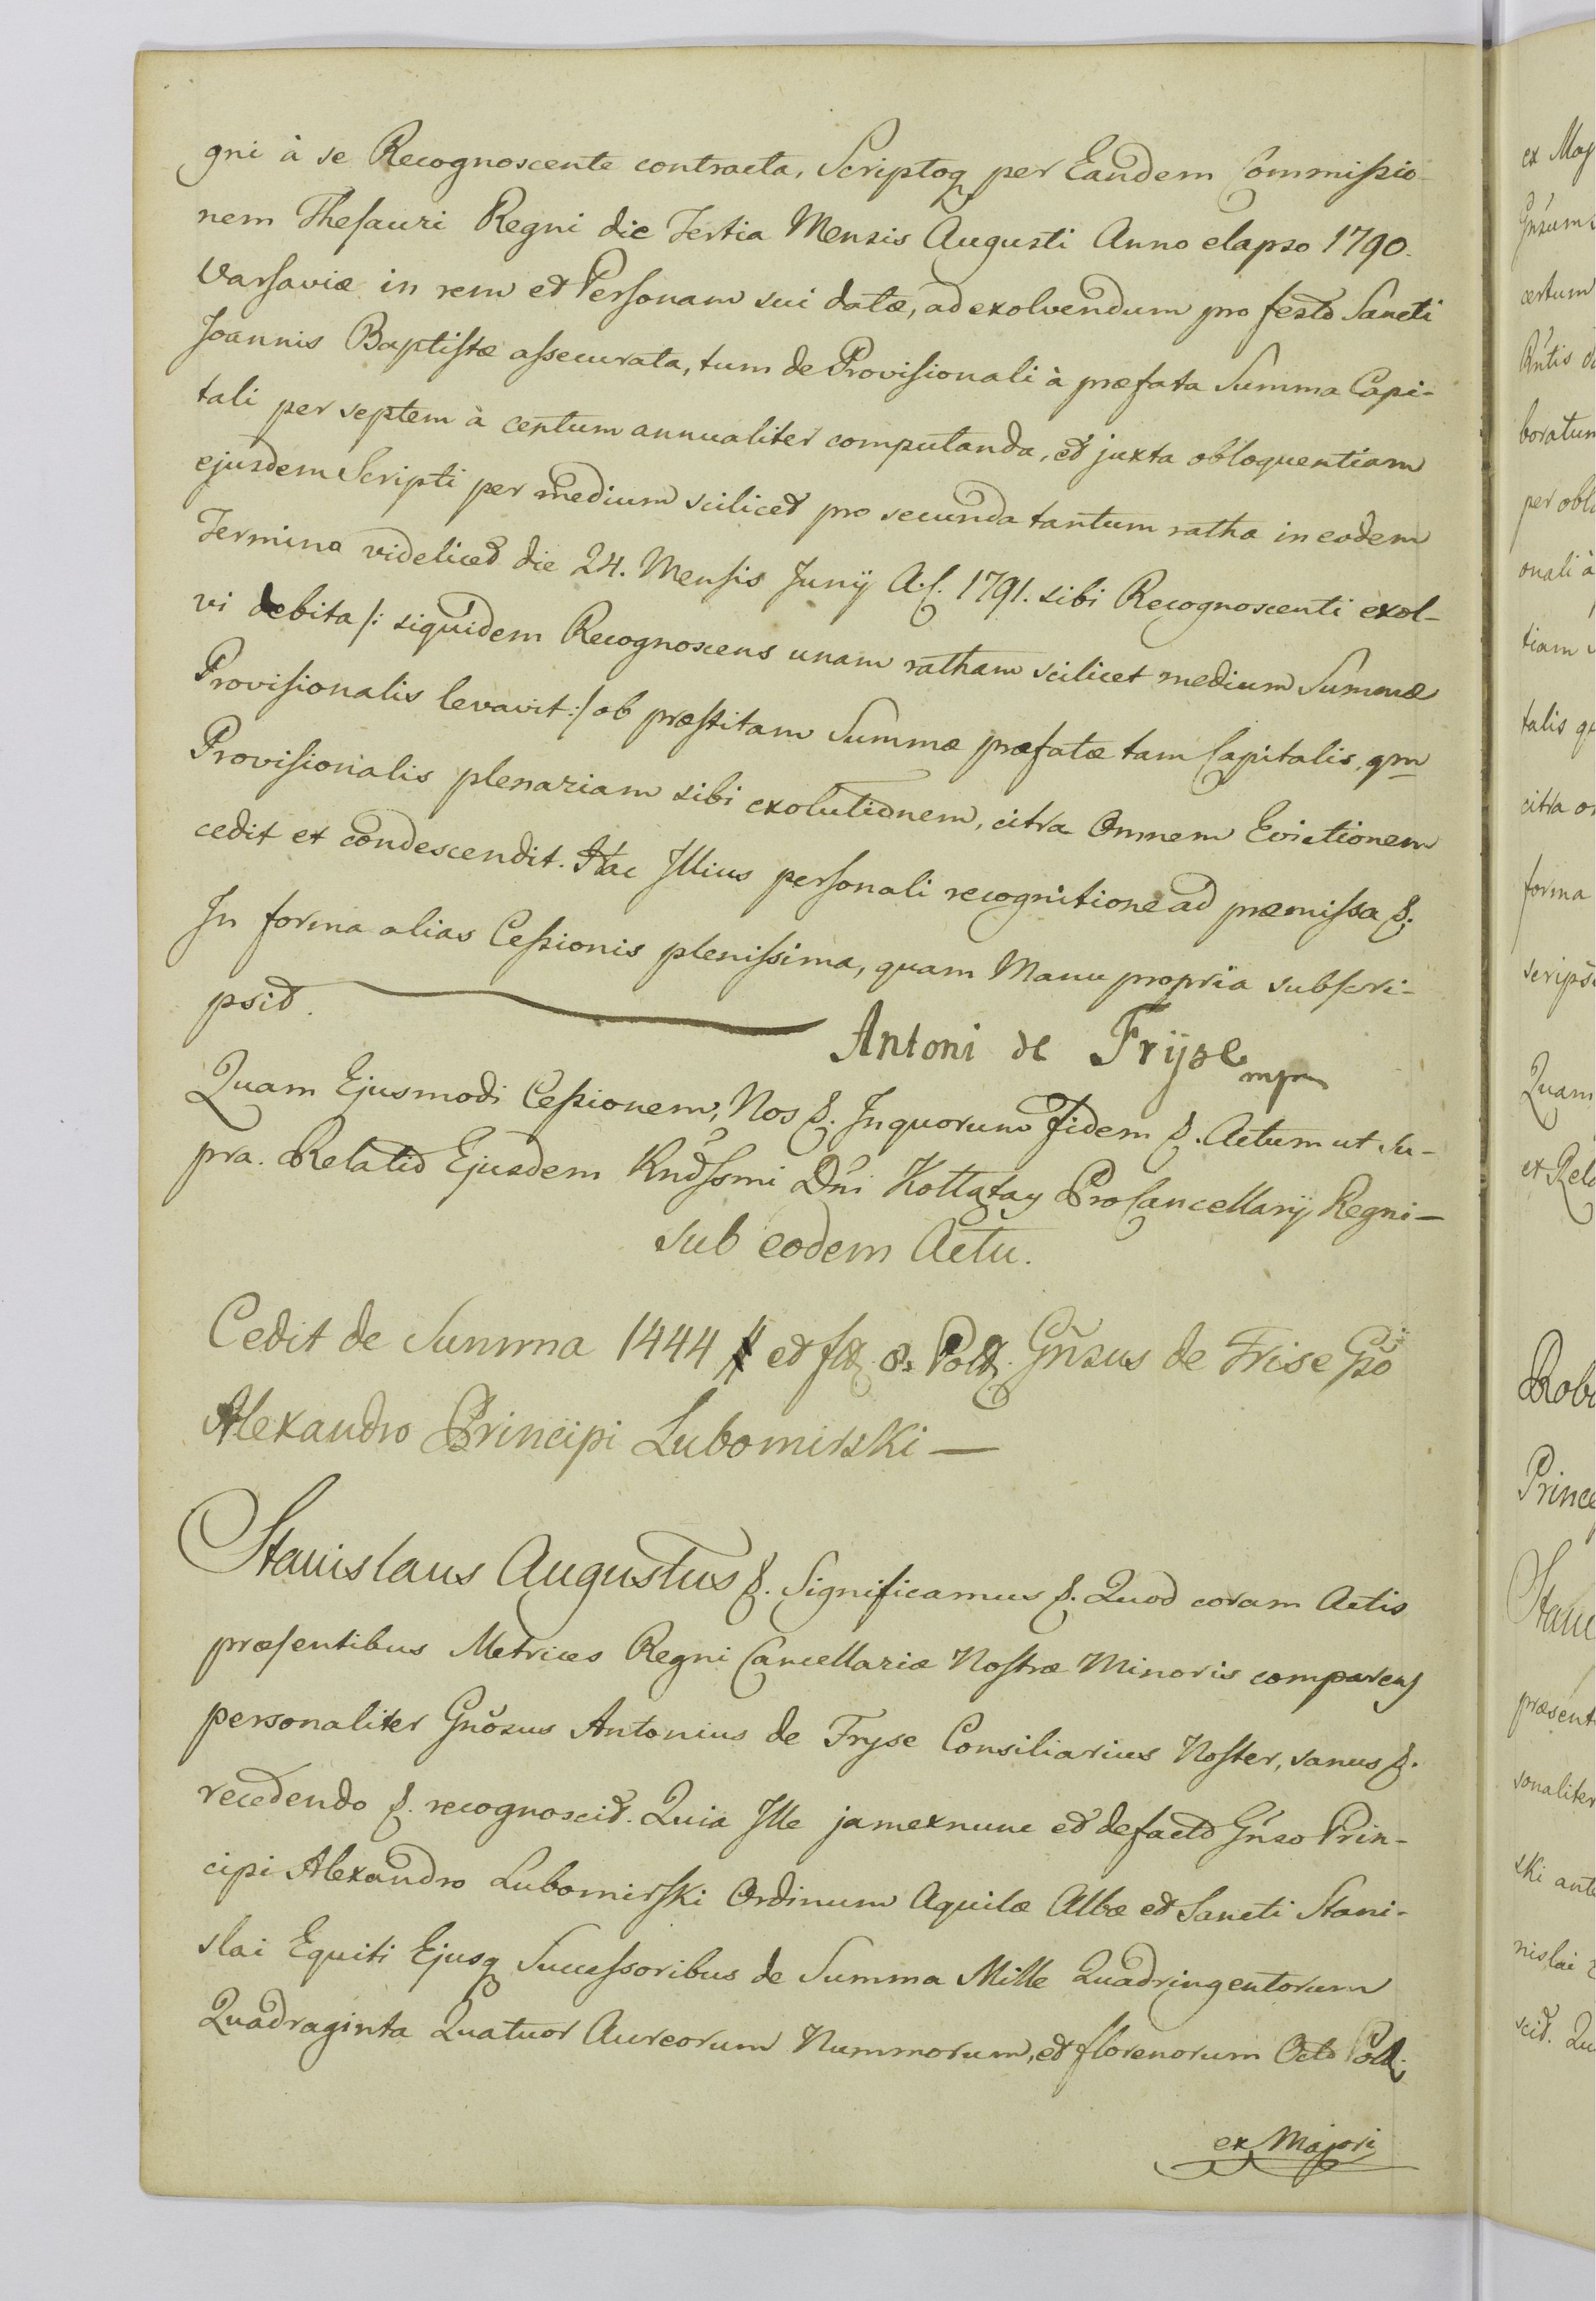 gni à se Recognoscente contracta, Scriptoq per Eandem Commissio-
nem Thesauri Regni die Tertia Mensis Augusti Anno elapso 1790.
Varsaviæ in rem et Personam sui datæ, ad exolvendum pro festo Sancti
Joannis Baptistæ assecurata, tum de Provisionali à præfata Summa Capi-
tali per septem à centum annualiter computanda, et juxta obloquentiam
ejusdem Scripti per medium scilicet pro secunda tantum ratha in eodem
Termino videlicet die 24. Mensis Junij A. C. 1791. sibi Recognoscenti exol-
vi debita /: siquidem Recognoscens unam ratham scilicet medium Summæ
Provisionalis levavit :/ ob præstitam Summæ præfatæ tam Capitalis, qm
Provisionalis plenariam sibi exolutionem, citra Omnem Evictionem
cedit et condescendit. Hac Illius personali recognitione ad præmissa &.
In forma alias Cessionis plenissima, quam Manu propria subscri-
psit.
Antoni de Fryze mpr
Quam Ejusmodi Cessionem, Nos &. In quorum Fidem &. Actum ut su-
pra. Relatio Ejusdem Rndssmi Dni Kołłątay ProCancellarij Regni —
sub eodem Actu.
Cedit de Summa 1444 # et flt. 8. Polt. Gnsus de Frise Gso
Alexandro Principi Lubomirski —
Stanislaus Augustus &. Significamus &. Quod coram Actis
præsentibus Metrices Regni Cancellariæ Nostræ Minoris comparens
personaliter Gnosus Antonius de Fryse Consiliarius Noster, sanus &.
recedendo &. recognoscit. Quia Ille jam exnunc et defacto Gnso Prin-
cipi Alexandro Lubomirski Ordinum Aquilæ Albæ et Sancti Stani-
slai Equiti Ejusq Successoribus de Summa Mille Quadringentorum
Quadraginta Quatuor Aureorum Nummorum, et florenorum Octo Polt.
ex Majori
ex Maj
Gnsum
certum
Rntis
boratum
per obl
onali à
tiam
talis
citra
forma
scrips
Quam
et Rela
Robo
Princ
Stani
præsent
sonaliter
ski ante
nislai
scit. Qu